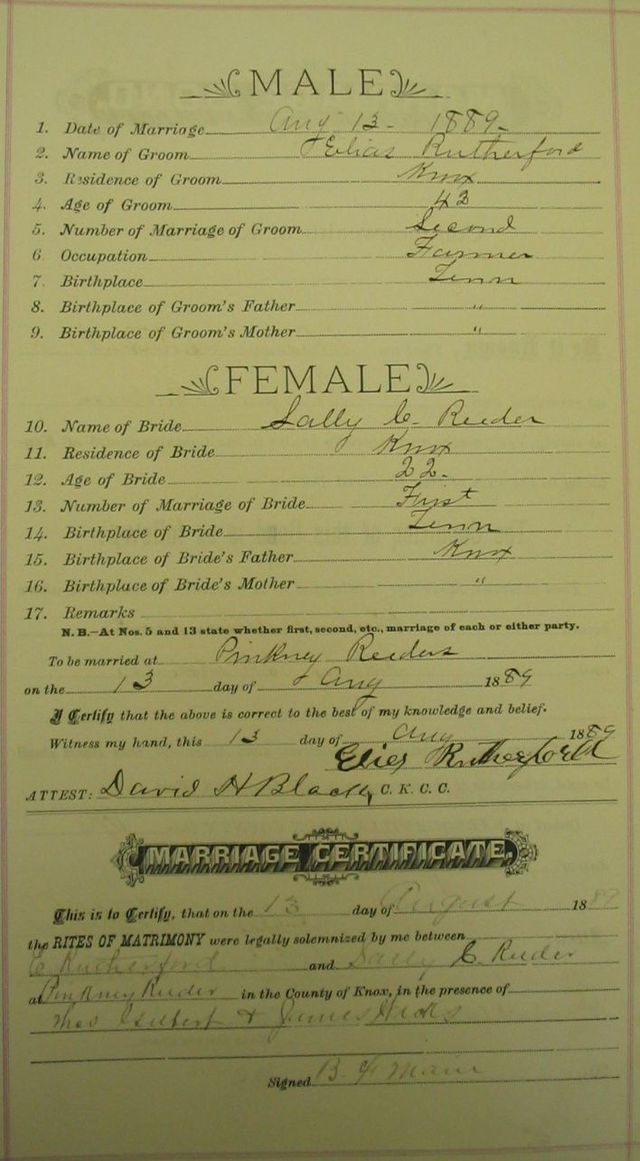 MALE
1. Date of Marriage Aug 13 - 1889-
2. Name of Groom Elias Rutherford
3. Residence of Groom Knox
4. Age of Groom 42
5. Number of Marriage of Groom Second
6. Occupation Farmer
7. Birthplace Tenn
8. Birthplace of Groom's Father "
9. Birthplace of Groom's Mother "
FEMALE
10. Name of Bride Sally C. Reeder
11. Residence of Bride Knox
12. Age of Bride 22-
13. Number of Marriage of Bride First
14. Birthplace of Bride Tenn
15. Birthplace of Bride's Father Knox
16. Birthplace of Bride's Mother "
17. Remarks
N.B.—At Nos. 5 and 13 state whether first, second, etc., marriage of each or either party.
To be married at Pinkney Reeders
on the 13 day of Aug 1889
I Certify that the above is correct to the best of my knowledge and belief.
Witness my hand, this 13 day of Aug 1889
Elies Rutherford
ATTEST: David H Black, C. K. C. C.
MARRIAGE CERTIFICATE.
This is to Certify, that on the 13 day of August 1889
the RITES OF MATRIMONY were legally solemnized by me between
E Rutherford and Sally C Reeder
at Pinkney Reeder in the County of Knox, in the presence of
Gilbert & James
Signed B. F.